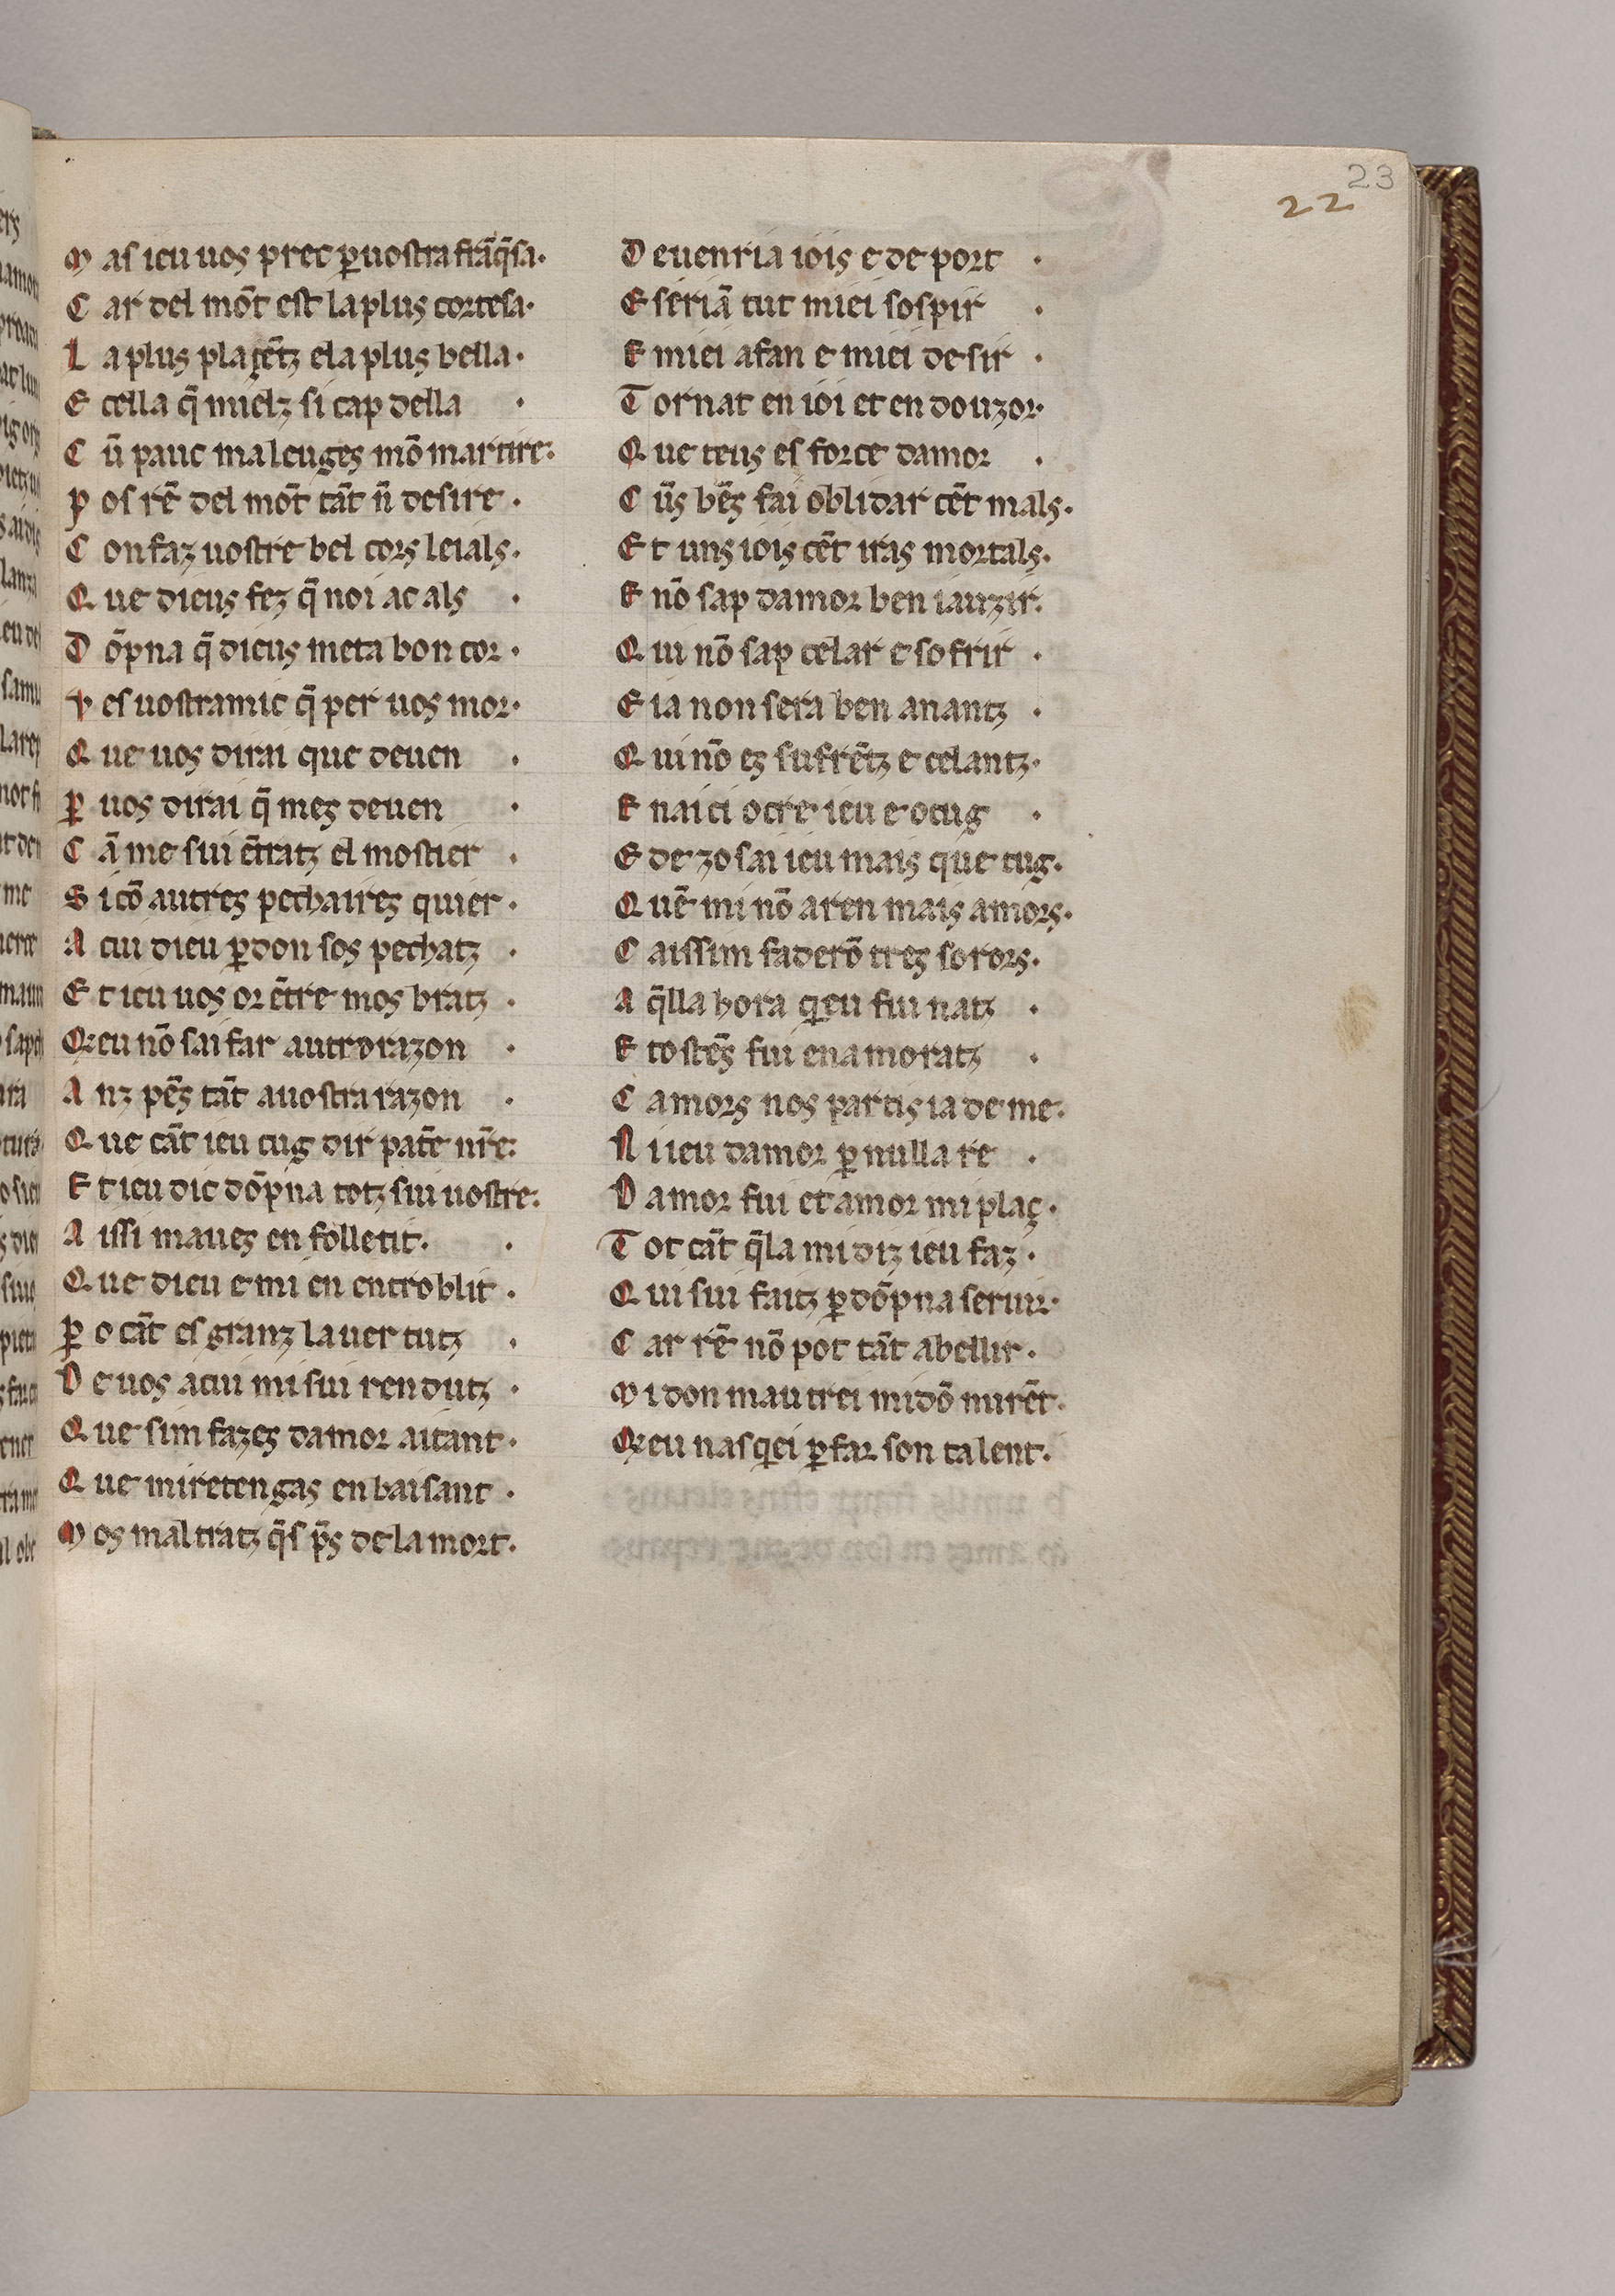 23
22
M as ieu uos prec ꝑ uostra frāq̄sa·
C ar del mōt est la plus cortesa·
L a plus plaçētz e la plus bella·
E cella q̄ mielz si cap della ·
C ū pauc maleuges mō martire·
P os rē del mōt tāt n̄ desire·
C on faz uostre bel cors leials·
Q ue dieus fez q̄ noi ac als ·
D ōpna q̄ dieus meta bon cor·
V es uostramic q̄ per uos mor·
Q ue uos dirai que deuen ·
ꝑ uos dirai q̄ mes deuen ·
C ā me sui ētratz el mostier ·
S i cō autres pechaires quier·
A cui dieu ꝑdon sos pechatz ·
E t ieu uos or ētre mos bratz ·
Q eu nō sai far autrorazon ·
A nz pēs tāt a uostra razon ·
Q ue cāt ieu cug dir pat̄e nr̄e·
E t ieu dic dōpna totz sui uostre·
A issi maues en folletit· ·
Q ue dieu e mi en entroblit ·
ꝑ o cāt es granz la uertutz ·
D e uos a cui mi sui rendutz ·
Q ue sim fazes damor aitant·
Q ue mi retengas en baisant ·
M os maltratz q̄s p̄s de la mort·
D euenria iois e deport ·
E seriā tut miei sospir ·
E miei afan e miei desir ·
T ornat en ioi et en douzor·
Q ue teus es force damor ·
C ūs bēs fai oblidar cēt mals·
E t uns iois cēt iras mortals·
E nō sap damor ben iauzir·
Q ui nō sap celar e sofrir ·
E ia non sera ben anantz ·
Q ui nō es sufrētz e celantz·
E naici o cre ieu e o cug ·
E de zo sai ieu mais que tug·
Q uē mi nō aren mais amors·
C aissim faderō tres sorors·
A q̄lla hora qieu fui natz ·
E tostēs fui enamoratz ·
C amors nos partis ia de me·
N i ieu damor ꝑ nulla re ·
D amor fui et amor mi plaç·
T ot cāt q̄la mi diz ieu faz·
Q ui sui faitz ꝑ dōpna seruir·
C ar rē nō pot tāt abellir·
M i don mautrei mi dō mi rēt·
Q eu nasqei ꝑ far son talent·